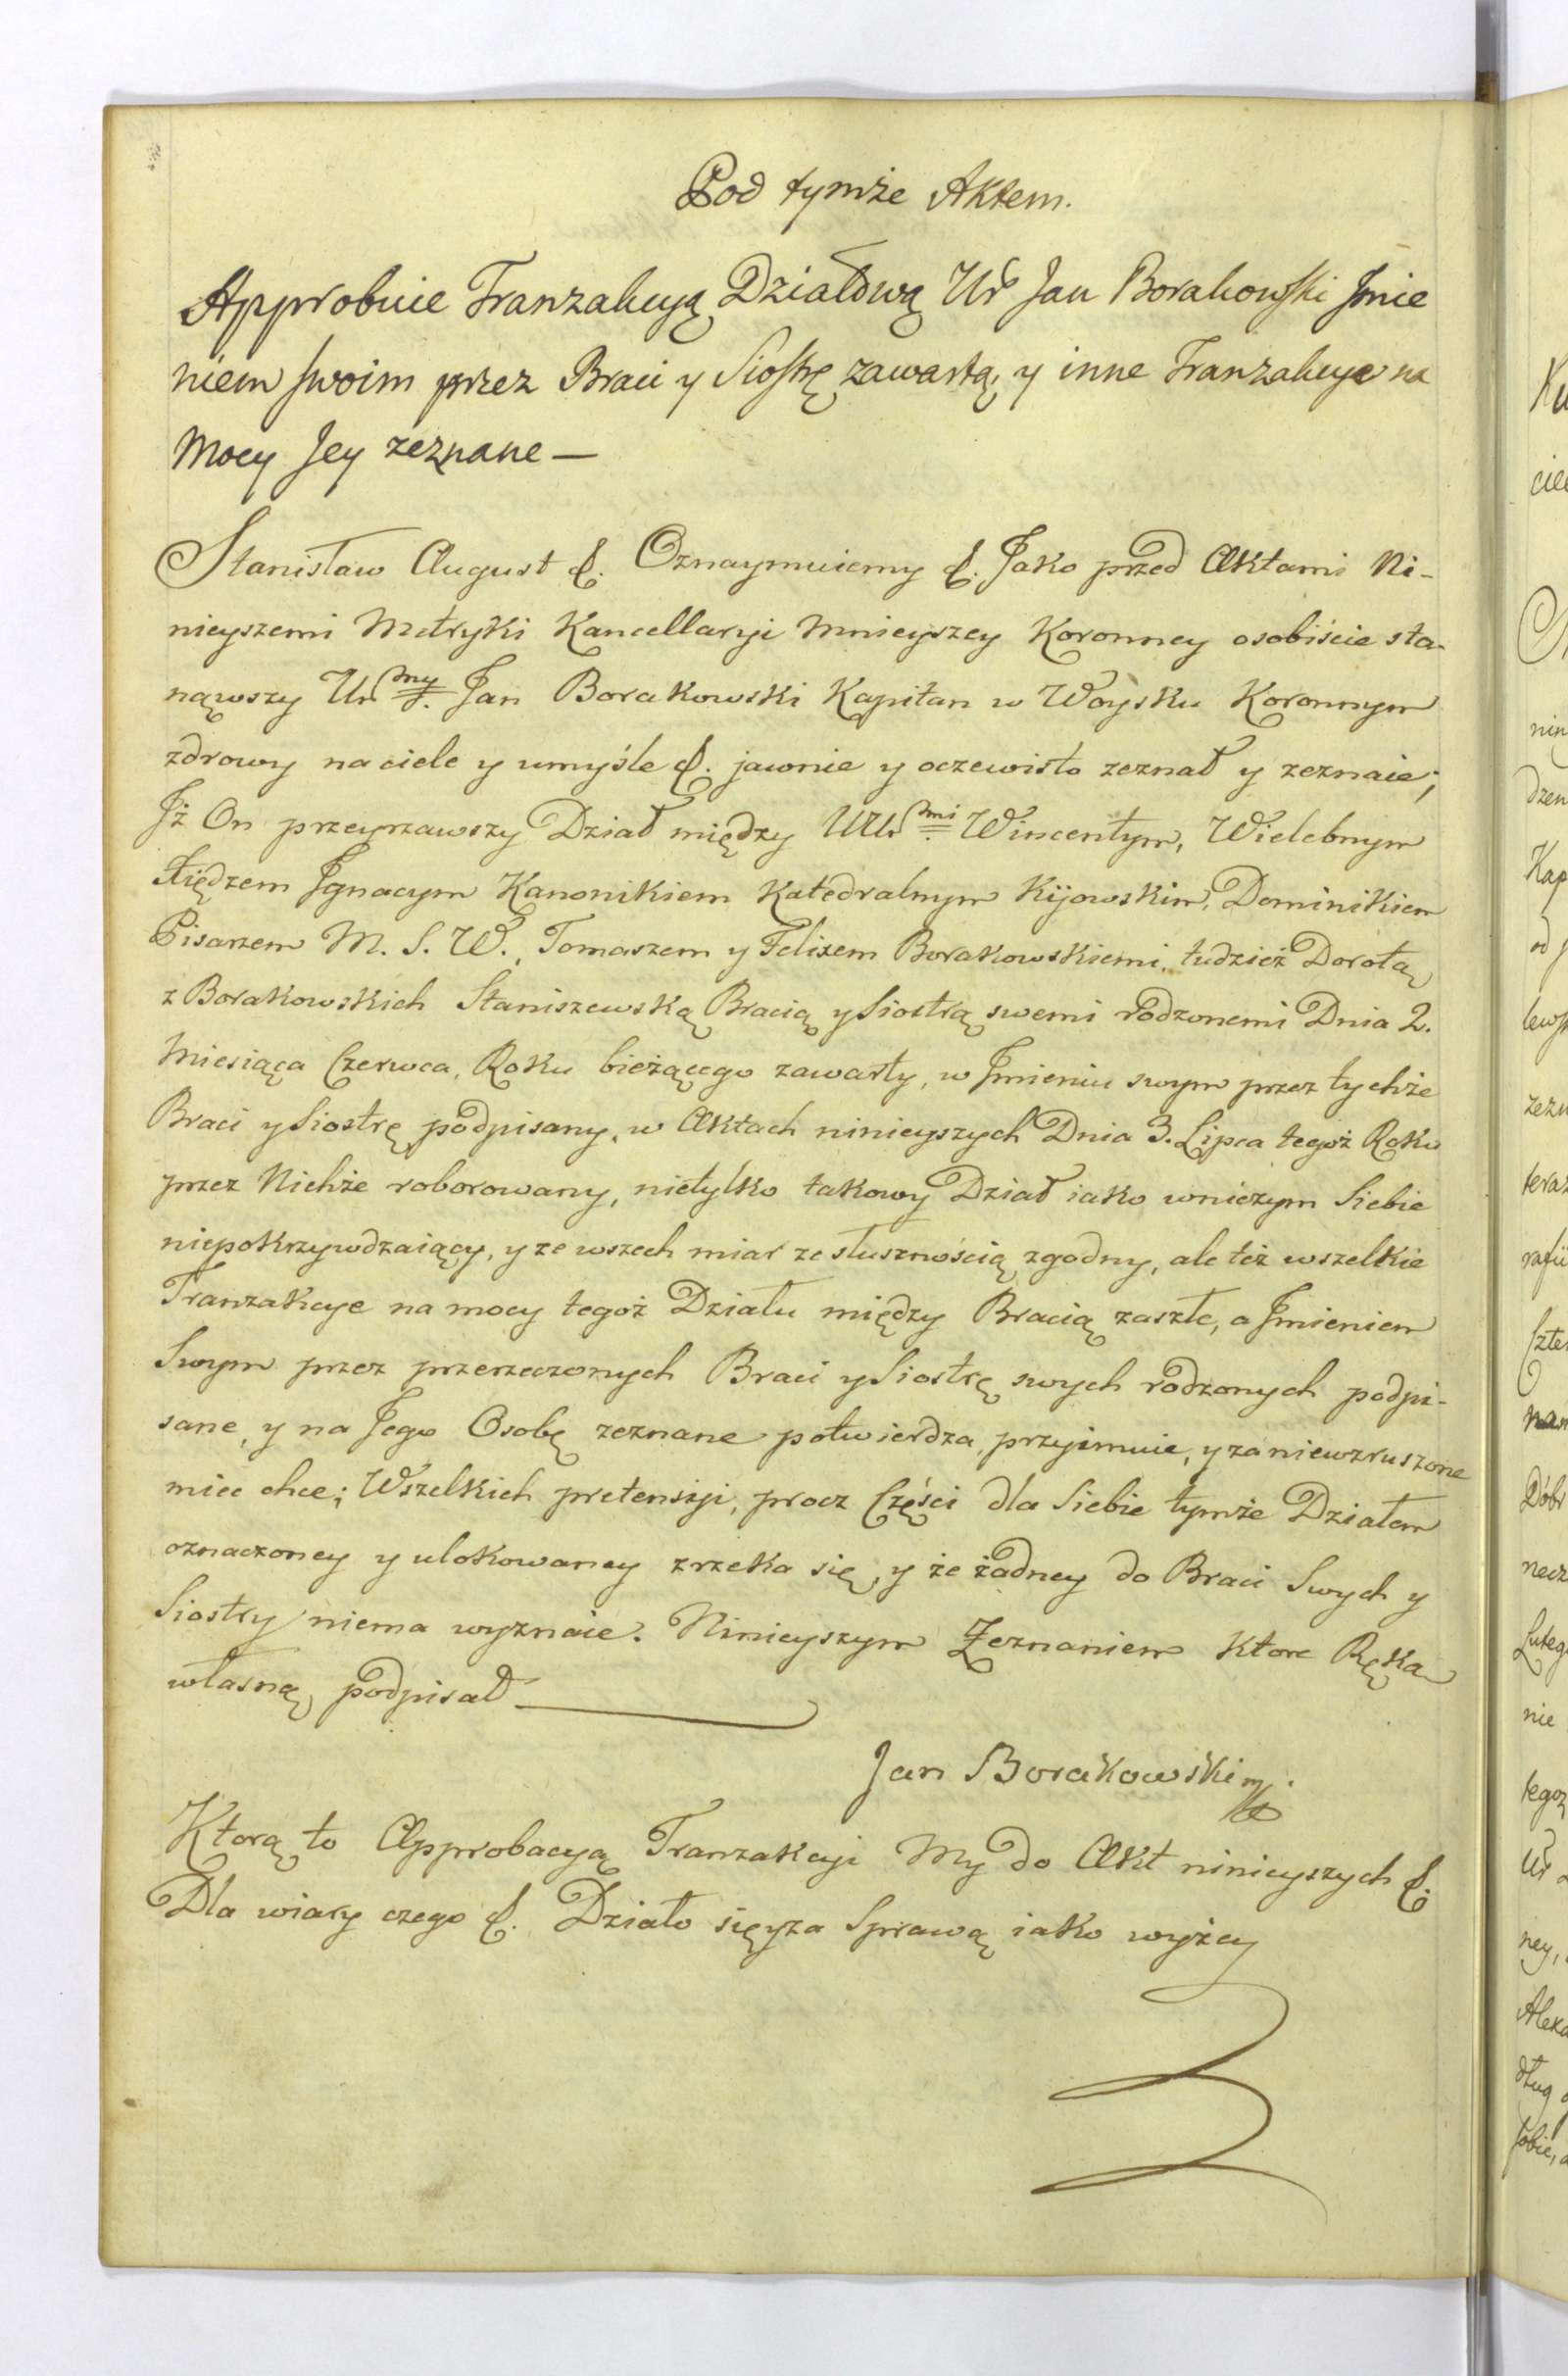 Pod tymże Aktem.
Approbuie Tranzakcyą Działową Ur Jan Borakowski Jmie
niem swoim przez Braci y Siostrę zawartą, y inne Tranzakcye na
Mocy Jey zeznane —
Stanisław August &. Oznaymuiemy &. Jako przed Aktami Ni-
nieyszemi Metryki Kancellaryi Mnieyszey Koronney osobiście sta-
nąwszy Urmy Jan Borakowski Kapitan w Woysku Koronnym
zdrowy na ciele y umyśle &. jawnie y oczewisto zeznał y zeznaie;
Jż On przeyrzawszy Dział między UUrmi Wincentym, Wielebnym
Xiędzem Jgnacym Kanonikiem Katedralnym Kijowskim, Dominikiem
Pisarzem M. S. W., Tomaszem y Felixem Borakowskiemi, tudzież Dorotą
z Borakowskich Staniszewską Bracią y Siostrą swemi rodzonemi Dnia 2.
Miesiąca Czerwca, Roku bieżącego zawarty, w Jmieniu swym przez tychże
Braci y Siostrę podpisany, w Aktach ninieyszych Dnia 3. Lipca tegoż Roku
przez Nichże roborowany, nietylko takowy Dział iako wniczym Siebie
niepokrzywdzaiący, y ze wszech miar ze słusznością zgodny, ale też wszelkie
Tranzakcye na mocy tegoż Działu między Bracią zaszłe, a Jmieniem
Swym przez przerzeczonych Braci y Siostrę swych rodzonych podpi-
sane, y na Jego Osobę zeznane potwierdza, przyimuie, y za niewzruszone
miec chce; Wszelkich pretensyi, procz Części dla Siebie tymże Działem
oznaczoney y ulokowaney zrzeka się, y że żadney do Braci Swych y
Siostry niema wyznaie. Ninieyszym Zeznaniem ktore Ręką
własną podpisał
Jan Borakowski mp.
Ktorą to Approbacyą Tranzakcyi My do Akt ninieyszych &.
Dla wiary czego &. Działo się y za Sprawą iako wyżey